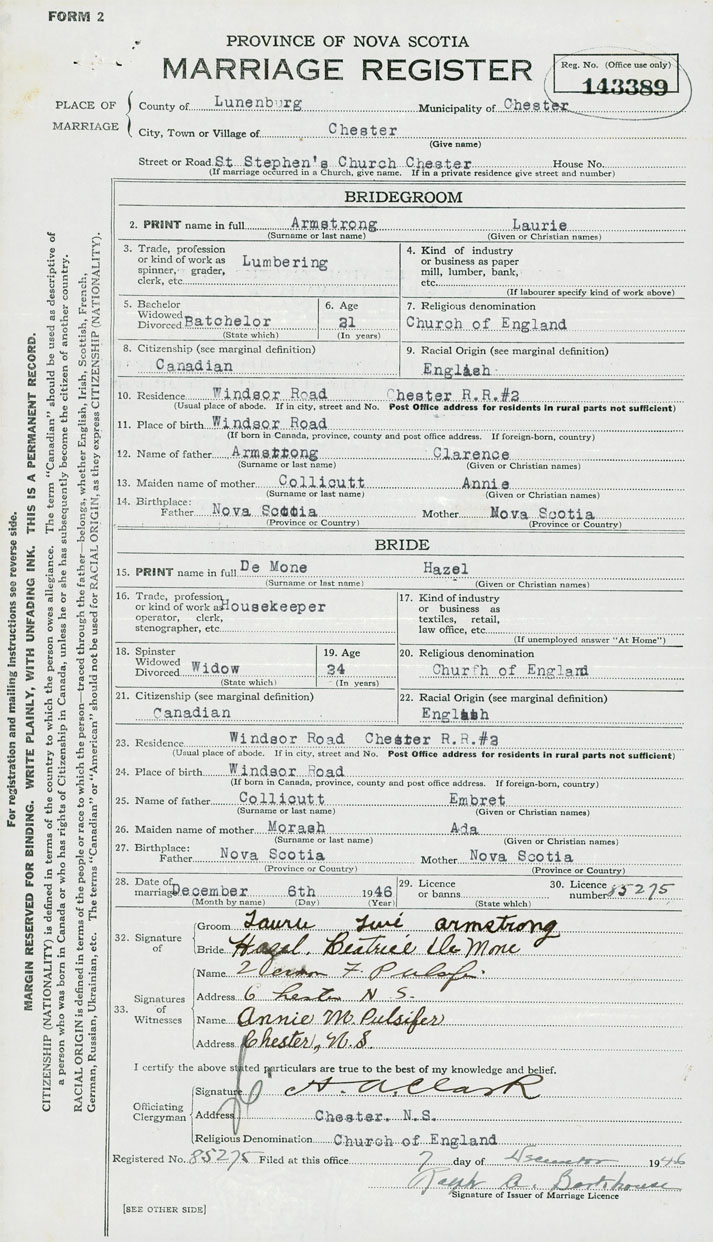 FORM 2
PROVINCE OF NOVA SCOTIA
MARRIAGE REGISTER
Reg. No. (Office use only)
143389
PLACE OF MARRIAGE
County of Lunenburg Municipality of Chester
City, Town or Village of Chester
(Give name)
Street or Road St Stephen's Church Chester House No.
(If marriage occurred in a Church, give name. If in a private residence give street and number)
BRIDEGROOM
2. PRINT name in full Armstrong Laurie
(Surname or last name) (Given or Christian names)
3. Trade, profession or kind of work as spinner, grader, clerk, etc. Lumbering
4. Kind of industry or business as paper mill, lumber, bank, etc.
(If labourer specify kind of work above)
5. Bachelor Widowed Divorced Batchelor
(State which)
6. Age 21
(In years)
7. Religious denomination
Church of England
8. Citizenship (see marginal definition)
Canadian
9. Racial Origin (see marginal definition)
English
10. Residence Windsor Road Chester R.R.#2
(Usual place of abode. If in city, street and No. Post Office address for residents in rural parts not sufficient)
11. Place of birth Windsor Road
(If born in Canada, province, county and post office address. If foreign-born, country)
12. Name of father Armstrong Clarence
(Surname or last name) (Given or Christian names)
13. Maiden name of mother Collicutt Annie
(Surname or last name) (Given or Christian names)
14. Birthplace:
Father Nova Scotia Mother Mova Scotia
(Province or Country) (Province or Country)
BRIDE
15. PRINT name in full De Mone Hazel
(Surname or last name) (Given or Christian names)
16. Trade, profession or kind of work as operator, clerk, stenographer, etc. Housekeeper
17. Kind of industry or business as textiles, retail, law office, etc.
(If unemployed answer "At Home")
18. Spinster Widowed Divorced Widow
(State which)
19. Age 34
(In years)
20. Religious denomination
Church of England
21. Citizenship (see marginal definition)
Canadian
22. Racial Origin (see marginal definition)
English
23. Residence Windsor Road Chester R.R.#2
(Usual place of abode. If in city, street and No. Post Office address for residents in rural parts not sufficient)
24. Place of birth Windsor Road
(If born in Canada, province, county and post office address. If foreign-born, country)
25. Name of father Collicutt Embret
(Surname or last name) (Given or Christian names)
26. Maiden name of mother Morash Ada
(Surname or last name) (Given or Christian names)
27. Birthplace:
Father Nova Scotia Mother Nova Scotia
(Province or Country) (Province or Country)
28. Date of marriage December 6th 1946
(Month by name) (Day) (Year)
29. Licence or banns
(State which)
30. Licence number 85275
32. Signature of
Groom Armstrong
Bride Hazel Beatrice De Mone
33. Signatures of Witnesses
Name F. Pulsifer
Address Chester N S.
Name Annie M Pulsifer
Address Chester, N.S.
I certify the above stated particulars are true to the best of my knowledge and belief.
Officiating Clergyman
Signature H. A. Clark
Address Chester. N.S.
Religious Denomination Church of England
Registered No. 85275 Filed at this office 7 day of December 1946
Ralph A.
Signature of Issuer of Marriage Licence
[SEE OTHER SIDE]
For registration and mailing instructions see reverse side.
MARGIN RESERVED FOR BINDING. WRITE PLAINLY, WITH UNFADING INK. THIS IS A PERMANENT RECORD.
CITIZENSHIP (NATIONALITY) is defined in terms of the country to which the person owes allegiance. The term "Canadian" should be used as descriptive of
a person who was born in Canada or who has rights of Citizenship in Canada, unless he or she has subsequently become the citizen of another country.
RACIAL ORIGIN is defined in terms of the people or race to which the person—traced through the father—belongs, whether English, Irish, Scottish, French,
German, Russian, Ukrainian, etc. The terms "Canadian" or "American" should not be used for RACIAL ORIGIN, as they express CITIZENSHIP (NATIONALITY).